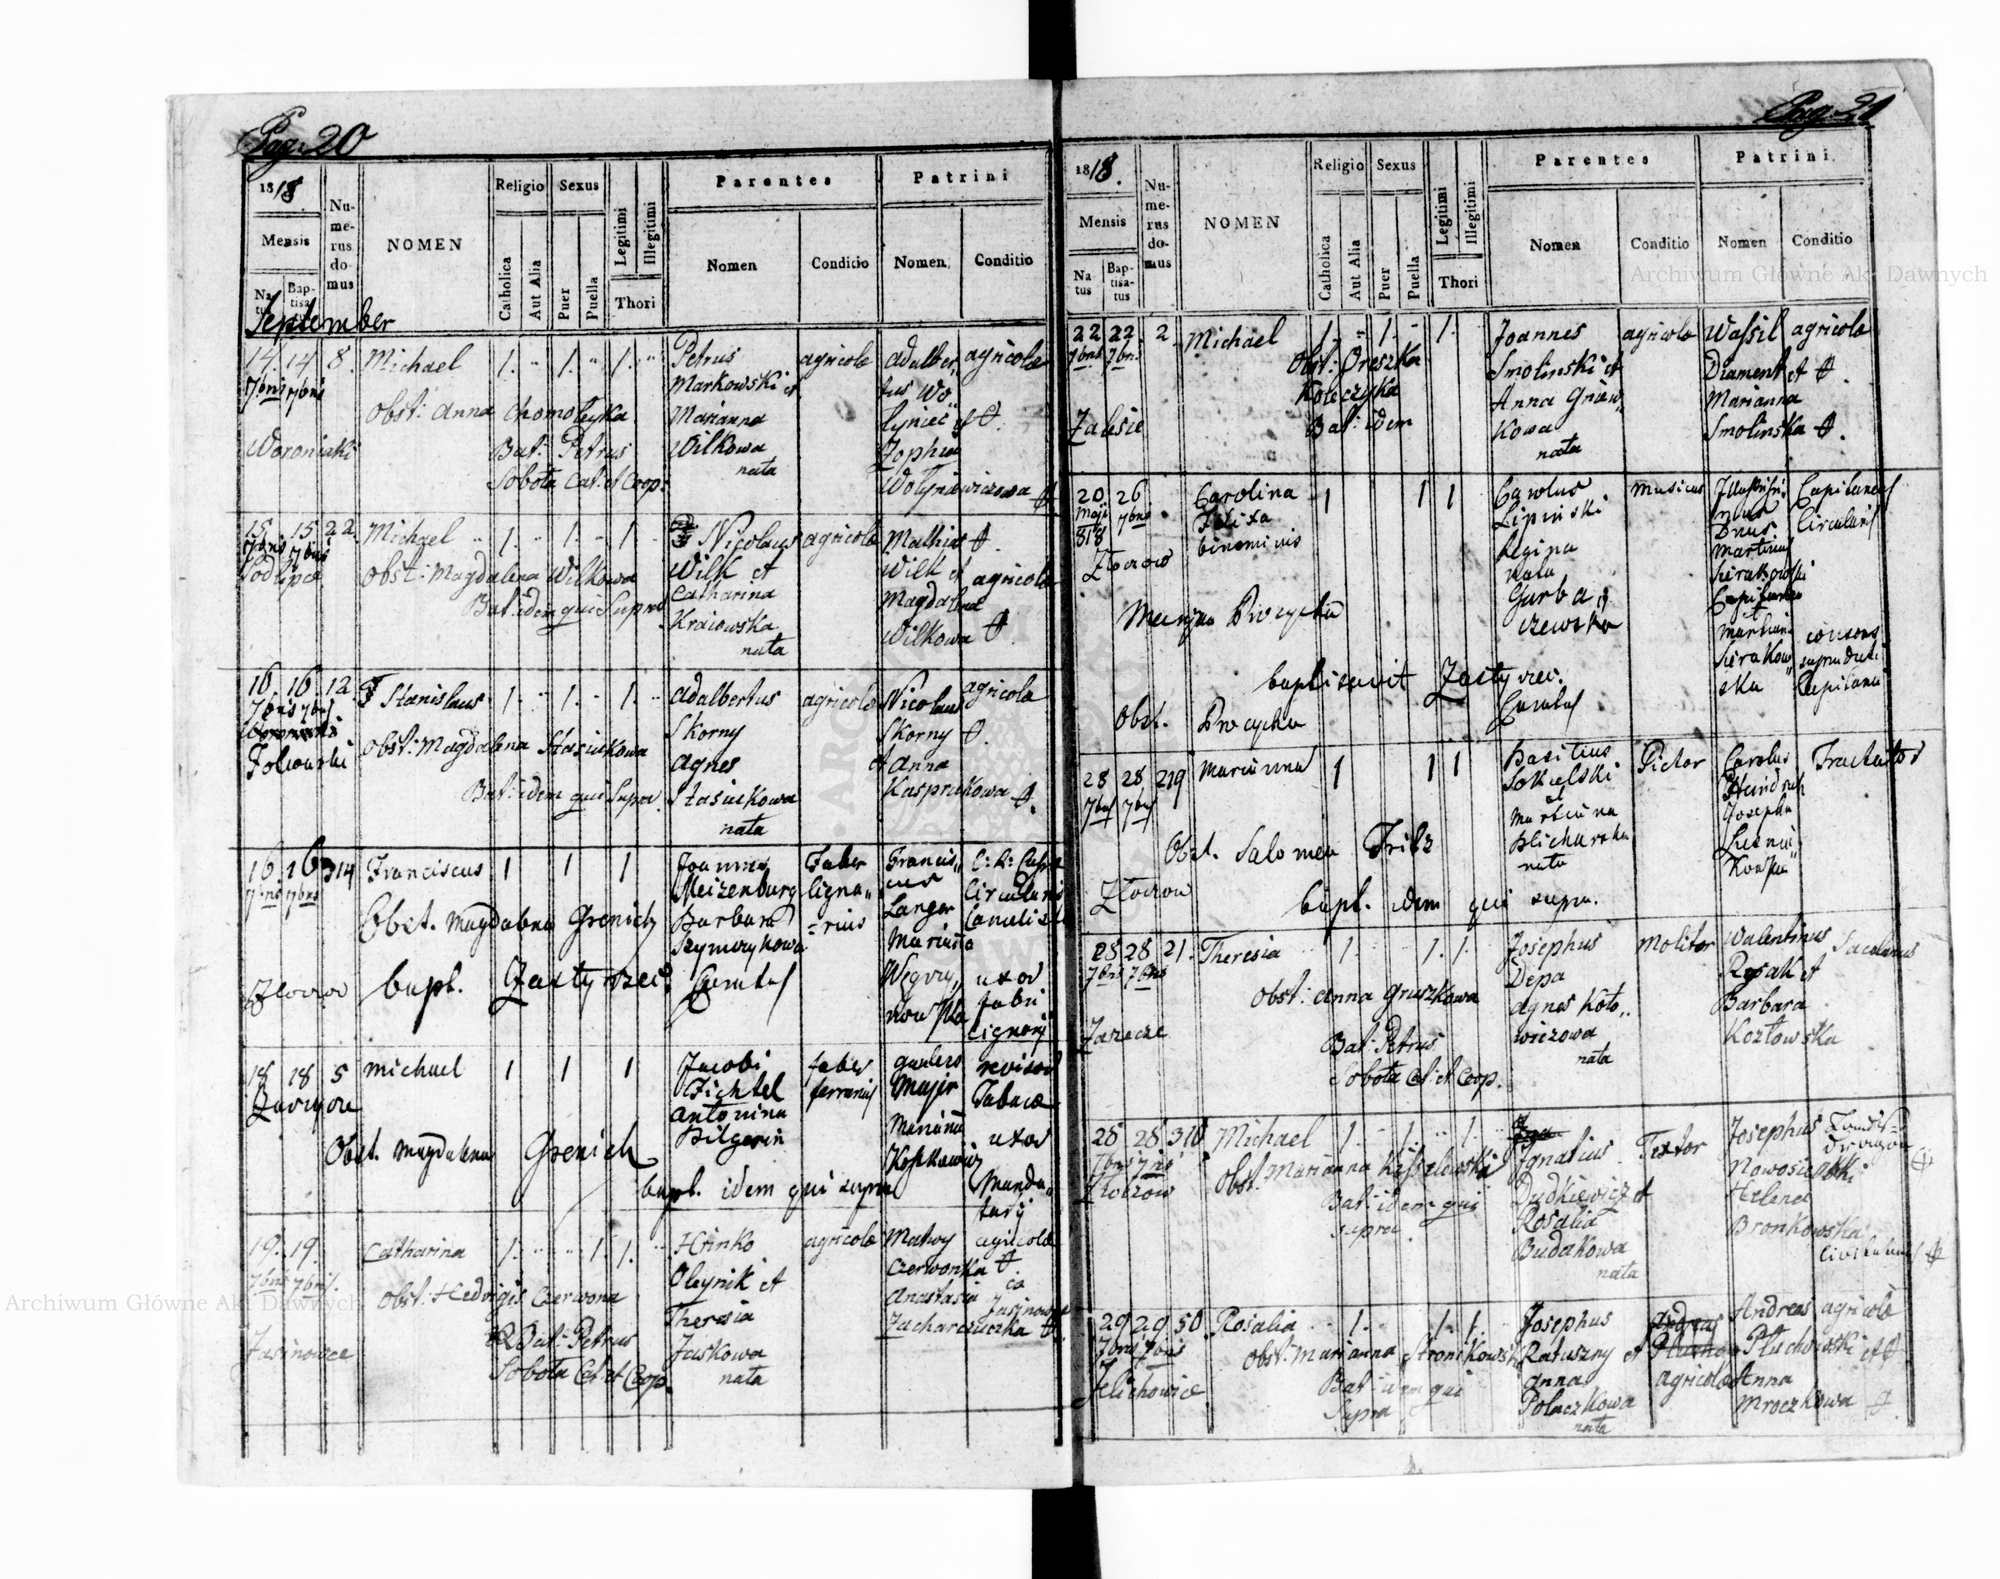 Pag. 20
1818.
Mensis
Natus
Baptisatus
Numerus domus
NOMEN
Religio
Catholica
Aut Alia
Sexus
Puer
Puella
Legitimi
Illegitimi
Thori
Parentes
Nomen
Conditio
Patrini
Nomen
Conditio
September
14 14 8 Michael 1 1 1 Petrus agricola Adalber- agricola
7bris 7bris Markowski et tus Wo-
Obst: Anna Chomoleyka Marianna łyniec et
Woroniaki Bat: Petrus Wilkowa Zophia
Sobota Cat: et Coop: nata Wołyniewiczowa
15 15 22 Michael 1 1 1 Nicolaus agricola Mathias
7bris 7bris Wilk et Wilk et agricola
Podlipce Obst: Magdalena Wilkowa Catharina Magdalena
Bat: idem qui Supra Kraiowska Wilkowa
nata
16 16 12 Stanislaus 1 1 1 Adalbertus agricola Nicolaus agricola
7bris 7bris Skorny Skorny
Obst: Magdalena Stasiukowa Agnes et Anna
Bat: idem qui Supra Stasiukowa Kasprukowa
nata
16 16 314 Franciscus 1 1 1 Joannes Faber Francis-
7bris 7bris Meizenburg ligna- cus Circularis
Obst. Magdalena Grenich Barbara rius Langer
Szymczykowa Marianna
Złoczow bapt. Zastyrzec Curatus uxor
fabri
lignarij
18 18 5 Michael 1 1 1 Jacobi faber revisor
Fichtel ferrarius Majer Tabacae
Antonina Marianna uxor
Obst. Magdalena Grenich Pilgerin
bapt. idem qui supra Manda-
tarij
19 19 Catharina 1 1 1 Hrinko agricola Matwy agricola
7bris 7bris Oleynik et Czerwonka
Obst: Hedvigis Czerwona Theresia Anastasia
Bat: Petrus Jaskowa Zacharczuczka
Jasinowce Sobota Cat: et Coop. nata
Pag. 21
1818.
Mensis
Natus
Baptisatus
Numerus domus
NOMEN
Religio
Catholica
Aut Alia
Sexus
Puer
Puella
Legitimi
Illegitimi
Thori
Parentes
Nomen
Conditio
Patrini
Nomen
Conditio
22 22 2 Michael 1 1 1 Joannes agricola Wassil agricola
7bris 7bris Obst: Oreszka Smolinski et Diament et
Koleczyka Anna Griew- Marianna
Zalesie Bat: idem kowa Smolinska
nata
20 26 Carolina 1 1 1 Carolus Musicus Capitaneus
Maji 7bris Felixa Lipinski Circularis
818 binominis Regina Martinus
Złoczow nata
Garba-
czewska
baptisavit Zastyrzec.
Obst. Curatus
28 28 219 Marianna 1 1 1 Basilius Pictor Carolus
7bris 7bris Sokulski
et Josepha
Obst. Salomea Fritz nata
Złoczow bapt. idem qui supra.
28 28 21 Theresia 1 1 1 Josephus Molitor Valentinus
7bris 7bris Depa Rysak et
Obst: Anna Gruszkowa Agnes Koto- Barbara
Zarzecze Bat: Petrus wiczowa Kozłowska
Sobota Cat: et Coop. nata
28 28 310 Michael 1 1 1 Ignatius Textor Josephus
7bris 7bris Obst: Marianna Dudkiewicz et Nowosielski
Złoczow Bat: idem qui Rosalia Helena
supra Budakowa Bronkowska
nata
29 29 50 Rosalia 1 1 1 Josephus Andreas agricola
7bris 7bris Obst: Marianna Ratuszny et
Jelichowice Bat: idem qui Anna agricola Anna
Supra Polaczkowa Mroczkowa
nata
Archiwum Główne Akt Dawnych
Archiwum Główne Akt Dawnych